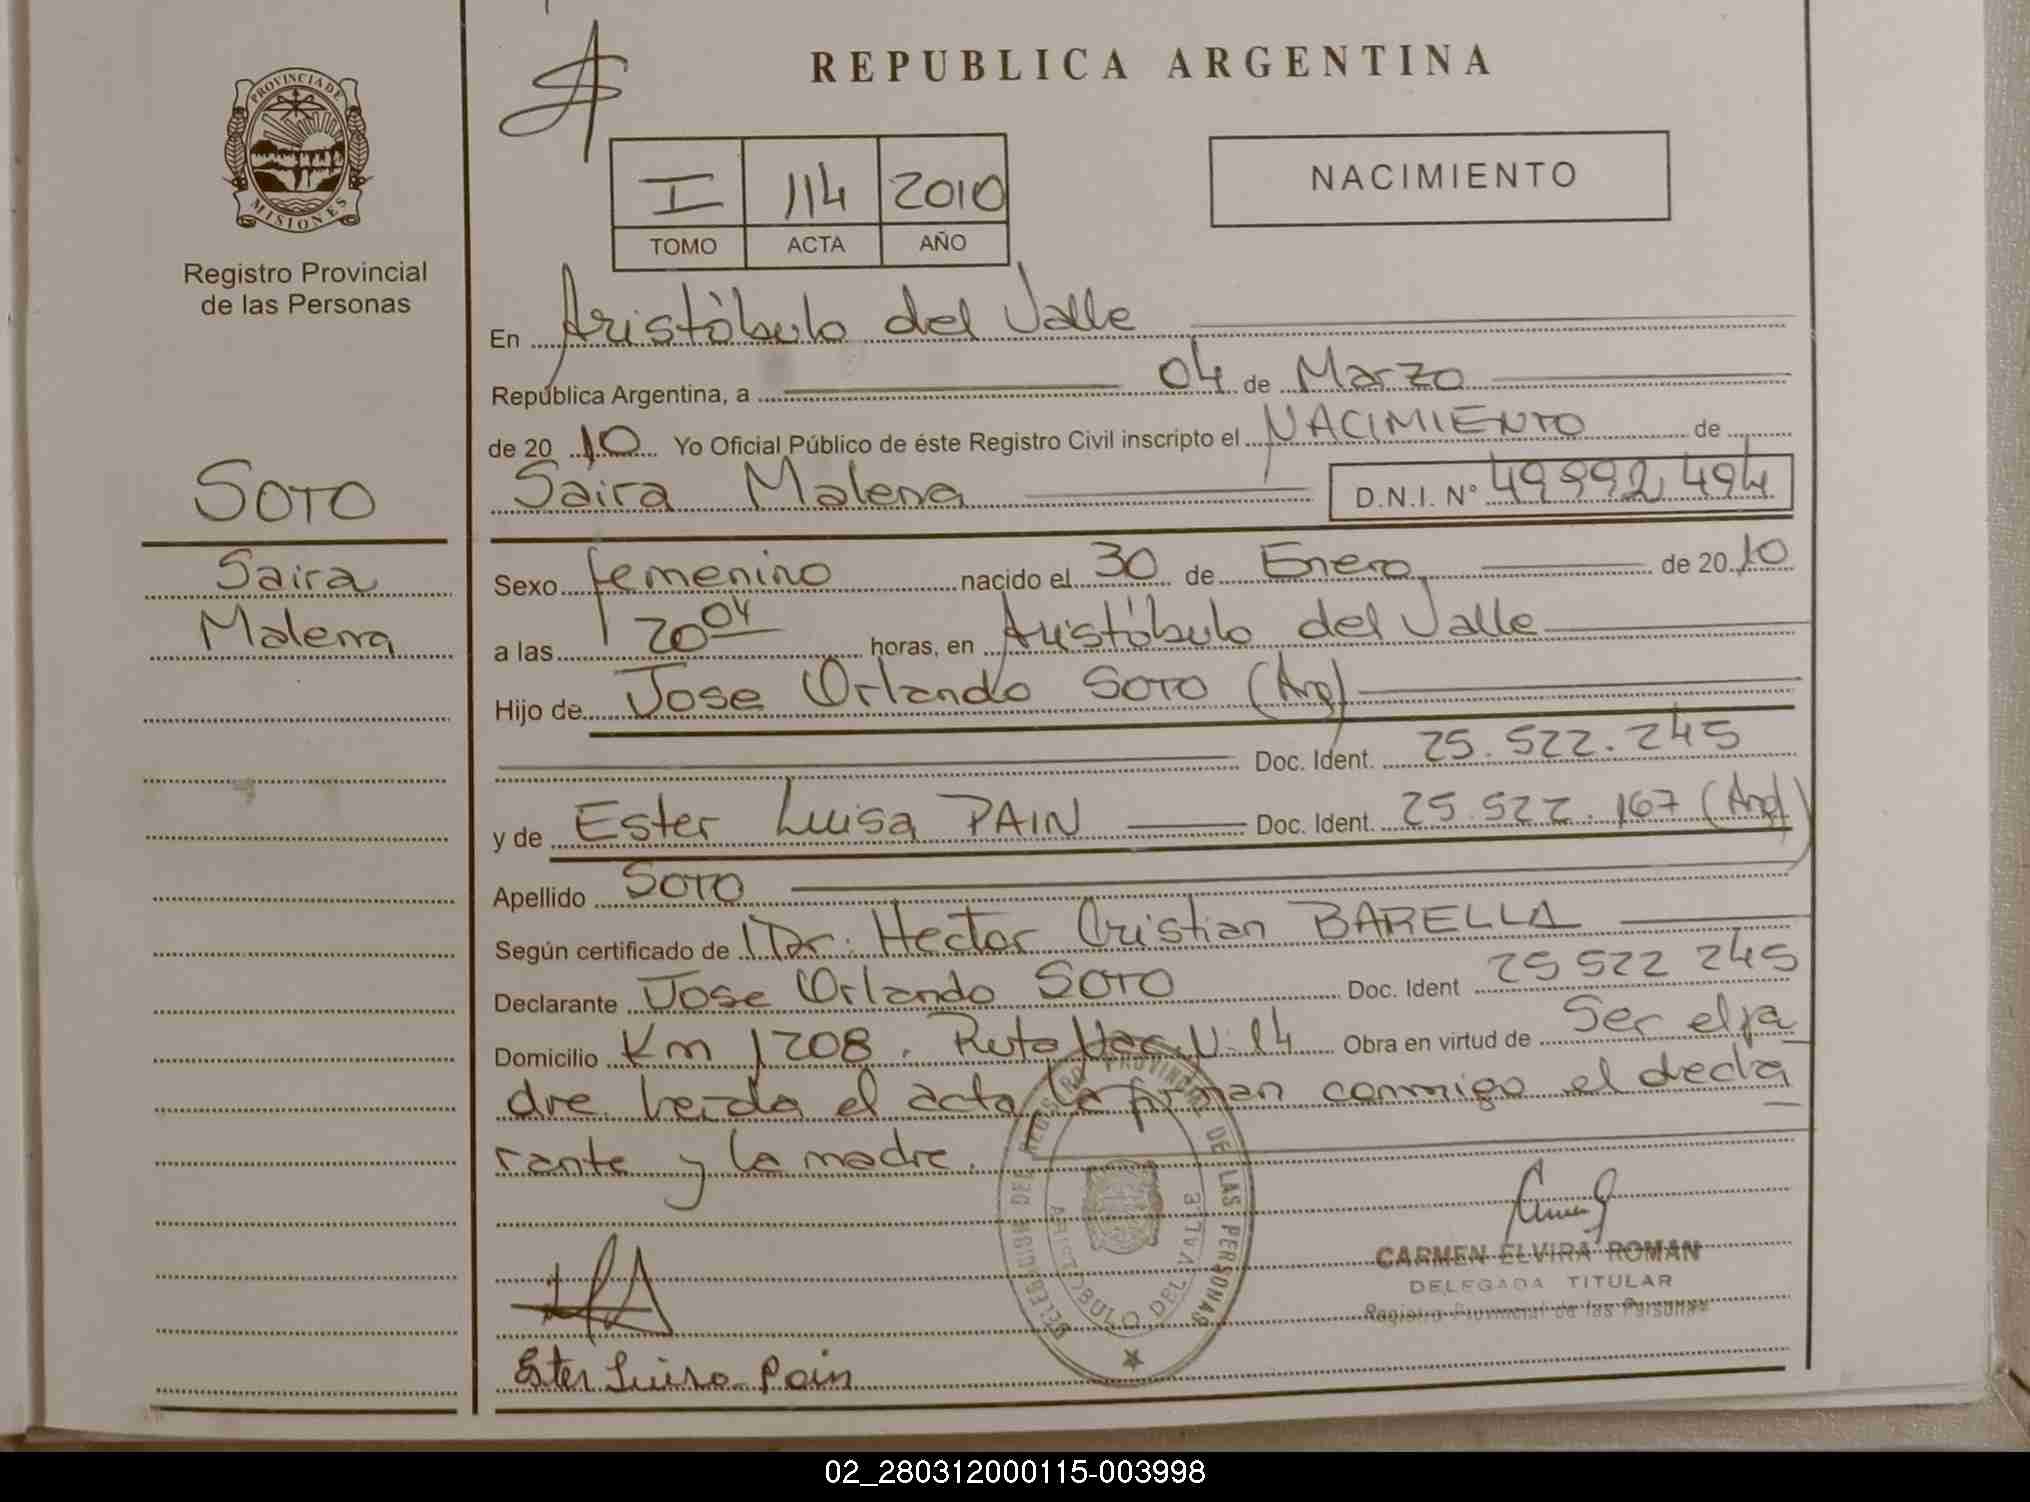 REPUBLICA ARGENTINA
PROVINCIA DE
MISIONES
Registro Provincial
de las Personas
I 114 2010
TOMO ACTA AÑO
NACIMIENTO
En Aristóbulo del Valle
República Argentina, a 04 de Marzo
de 20 10 Yo Oficial Público de éste Registro Civil inscripto el NACIMIENTO de
Saira Malena D.N.I. N° 49 992 494
SOTO
Saira
Malena
Sexo femenino nacido el 30 de Enero de 20 10
a las 20 04 horas, en Aristóbulo del Valle
Hijo de Jose Orlando SOTO (Arg)
Doc. Ident. 25.522.245
y de Ester Luisa PAIN Doc. Ident. 25.522.167 (Arg)
Apellido SOTO
Según certificado de Dr. Hector Cristian BARELLA
Declarante Jose Orlando SOTO Doc. Ident 25 522 245
Domicilio Km 1208. Ruta Nac. N: 14 Obra en virtud de Ser el pa
dre. Leida el acta, la firman conmigo el decla
rante y la madre.
REGISTRO PROVINCIAL DE LAS PERSONAS
ARISTOBULO DEL VALLE
CARMEN ELVIRA ROMAN
DELEGADA TITULAR
Registro Provincial de las Personas
Ester Luisa Pain
02_280312000115-003998